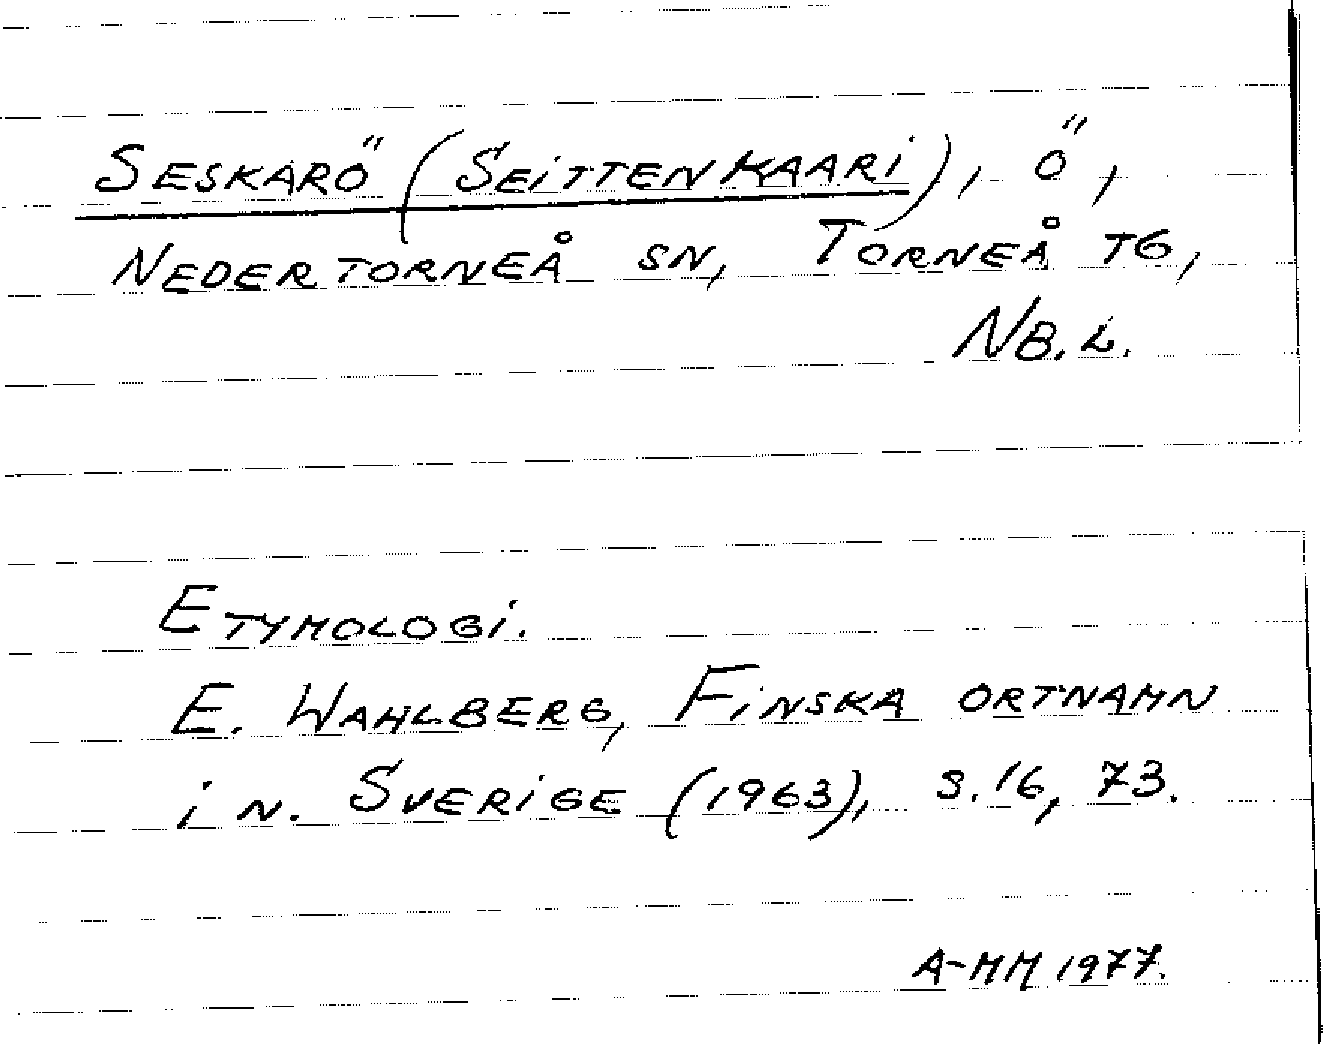 SESKARÖ (SEITTENKAARI), Ö,
NEDERTORNEÅ SN, TORNEÅ TG,
NB.L.
ETYMOLOGI.
E. WAHLBERG, FINSKA ORTNAMN
I N. SVERIGE (1963), S.16, 73.
A-MM 1977.